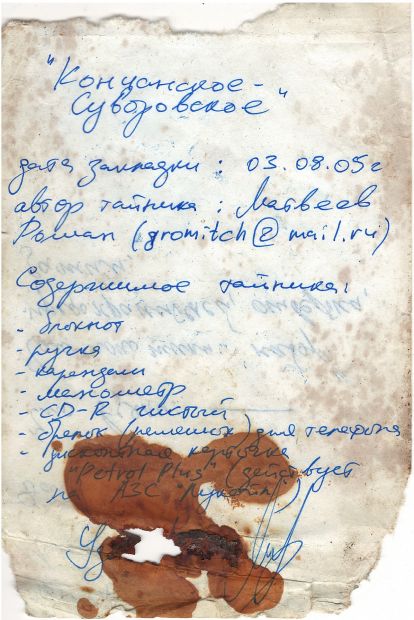 "Кончанское-
Суворовское"
дата закладки : 03.08.05г
автор тайника : Матвеев
Роман (gromitch@mail.ru)
Содержимое тайника:
- блокнот
- ручка
- карандаш
- манометр
- CD-R чистый
- брелок (ремешок) для телефона
- дисконтная карточка
"Petrol Plus" (действует
на АЗС "Лукойл")